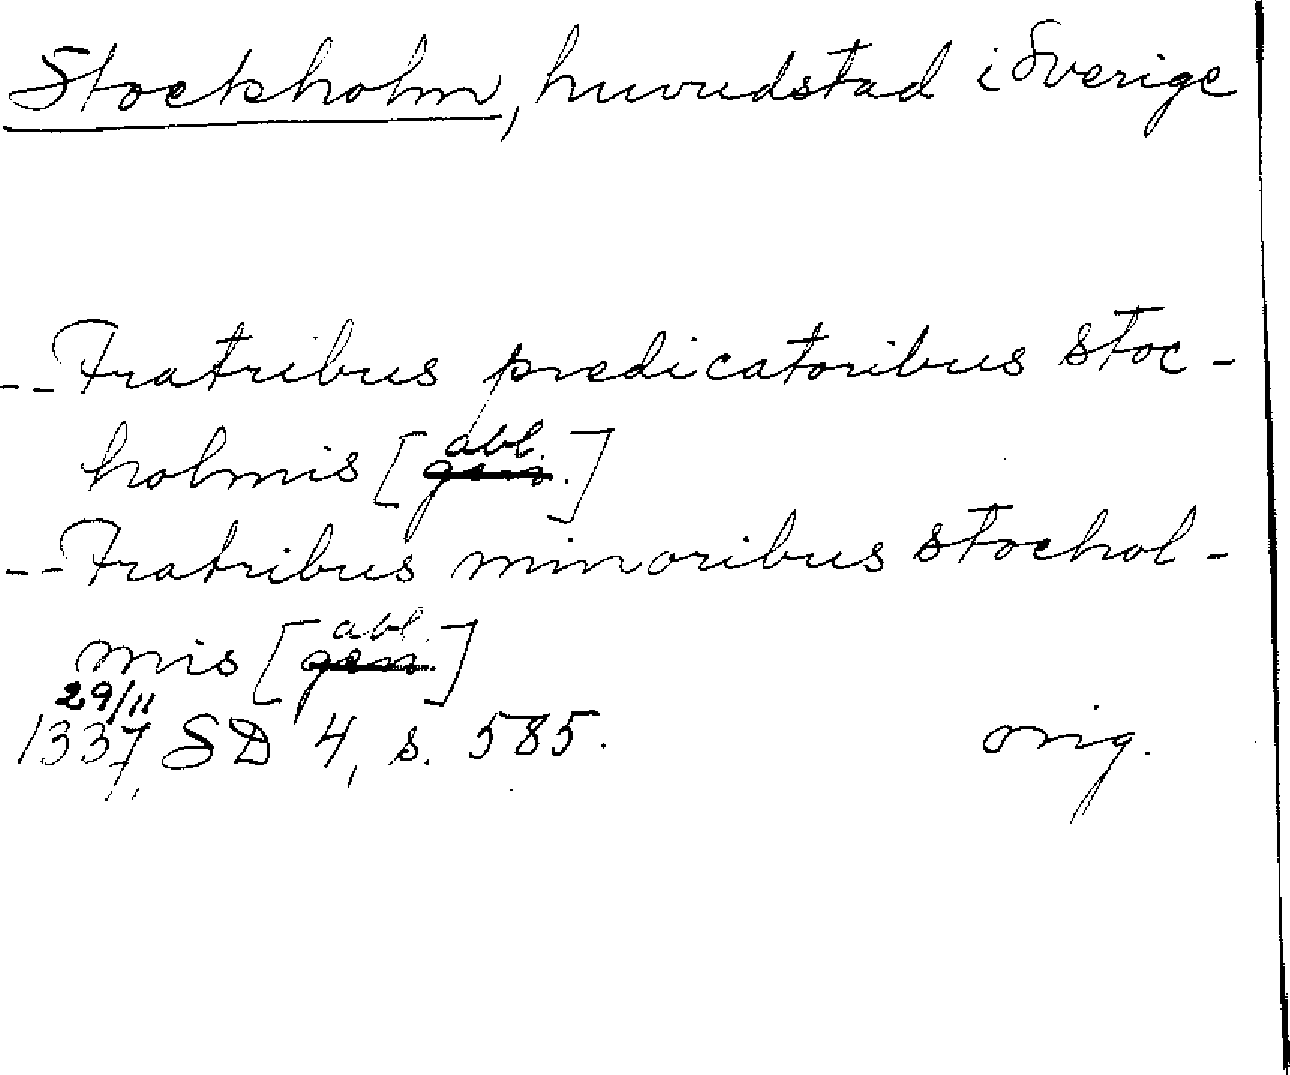 Stockholm, huvudstad i Sverige
--Fratribus predicatoribus stoc-
holmis [gen. abl.]
--Fratribus minoribus stochol-
mis [gen. abl.]
29/11
1337, SD 4, s. 585. orig.